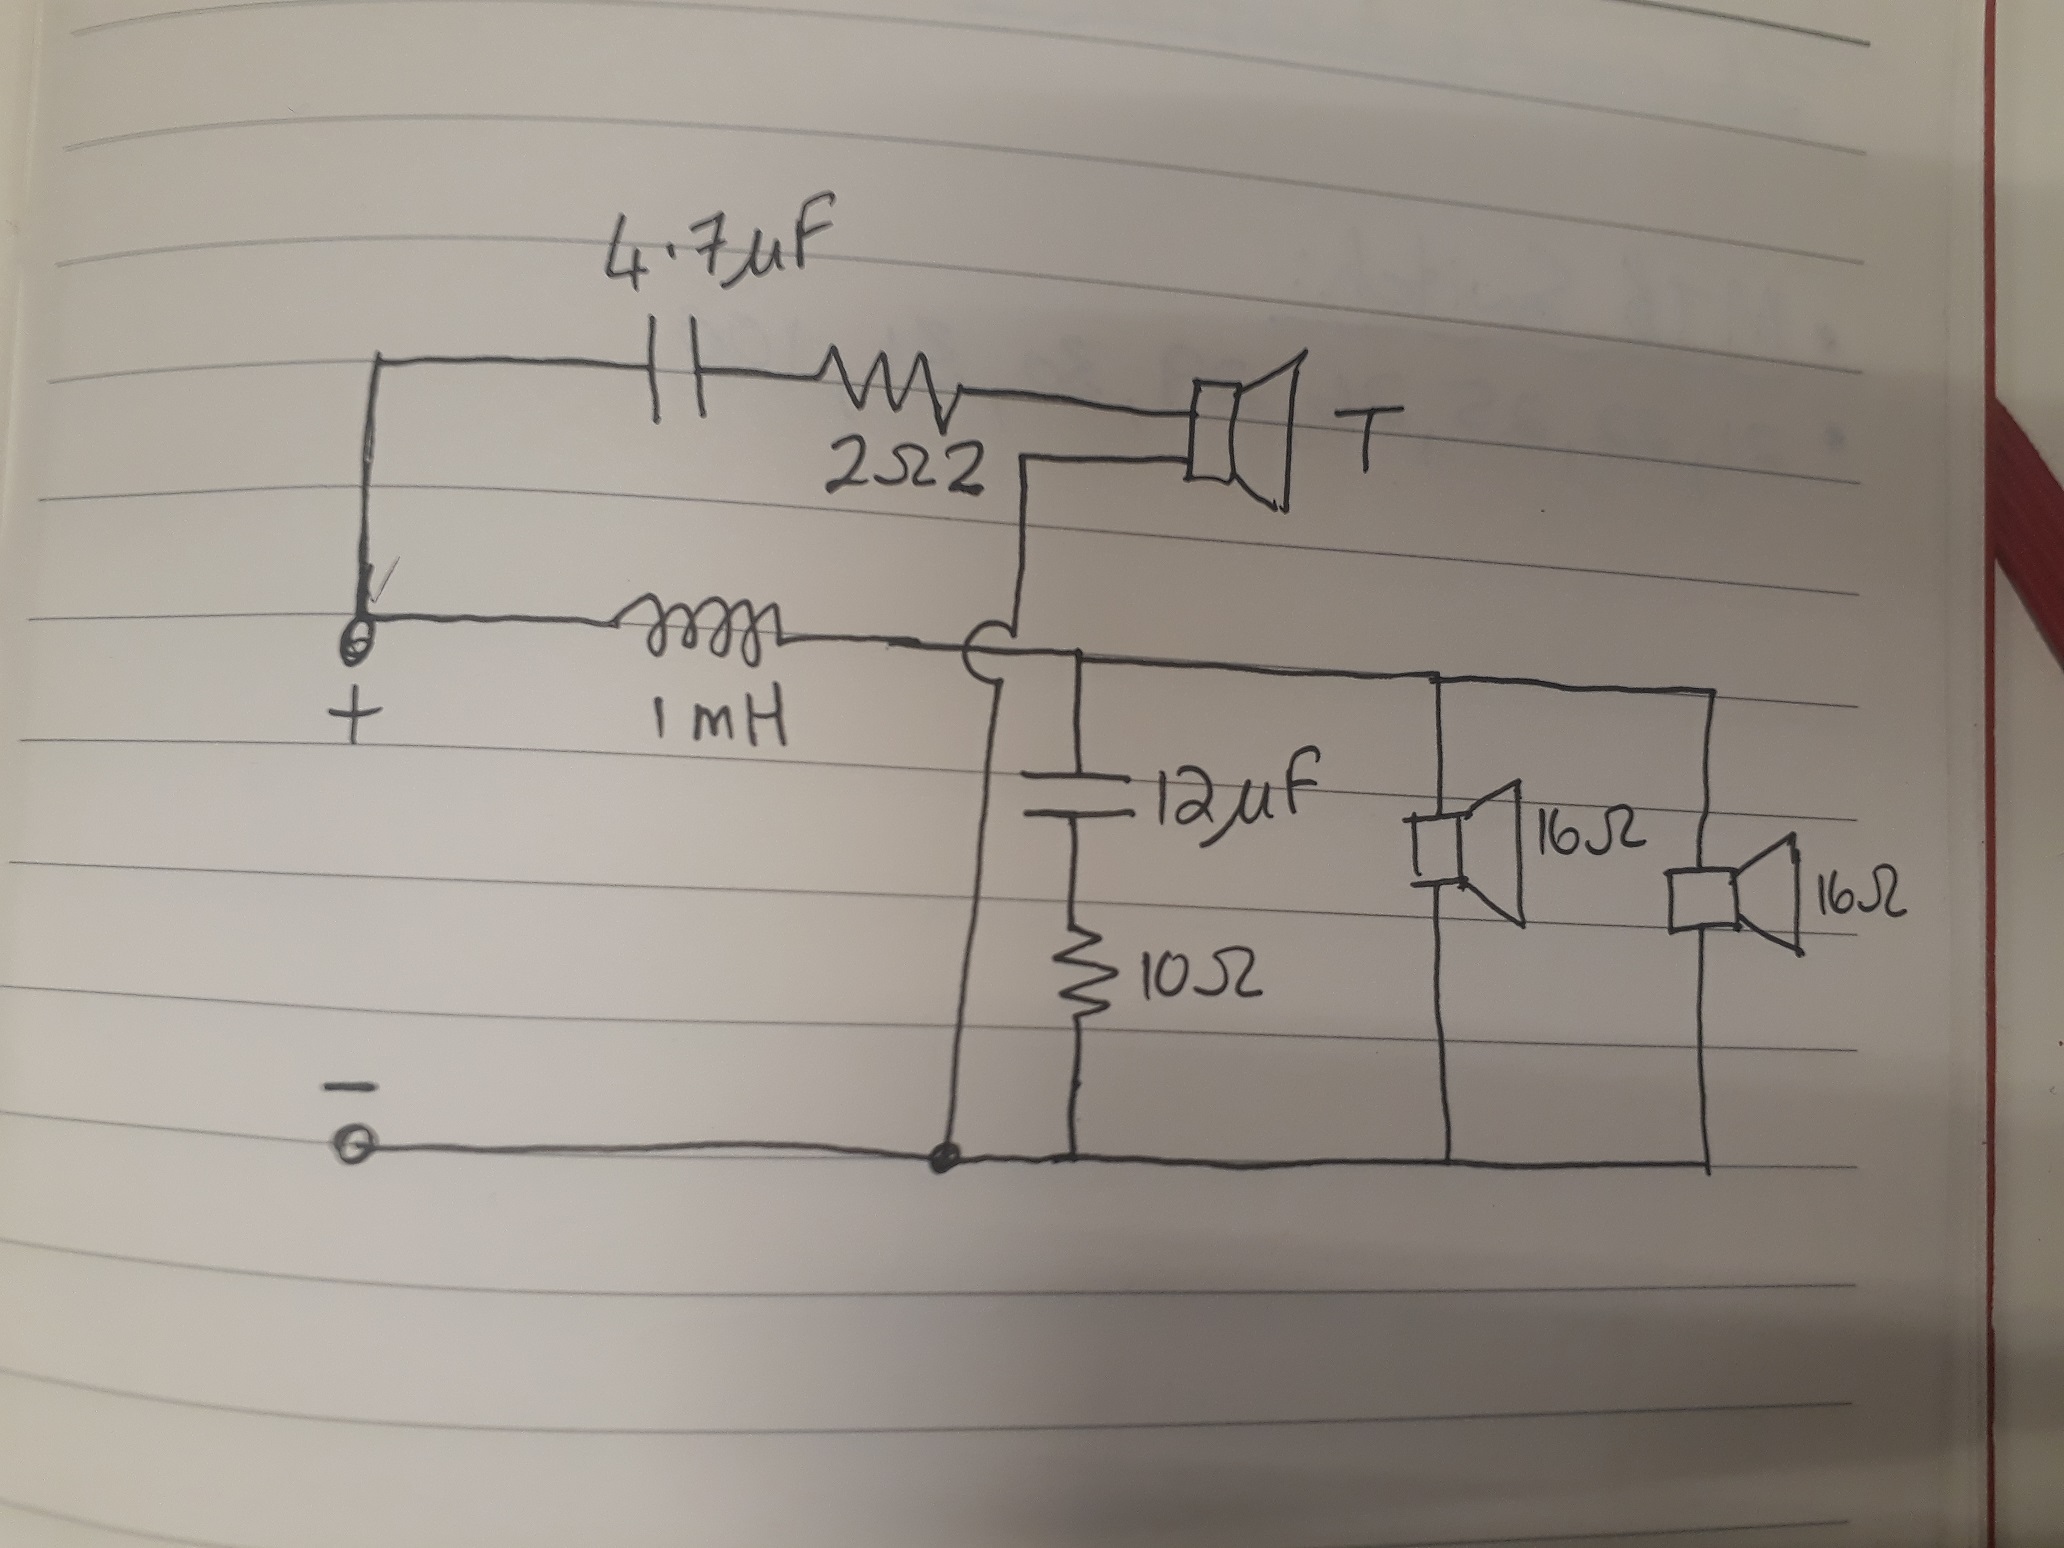 4.7μF
2Ω2
T
+
1mH
12μF
16Ω
16Ω
10Ω
−